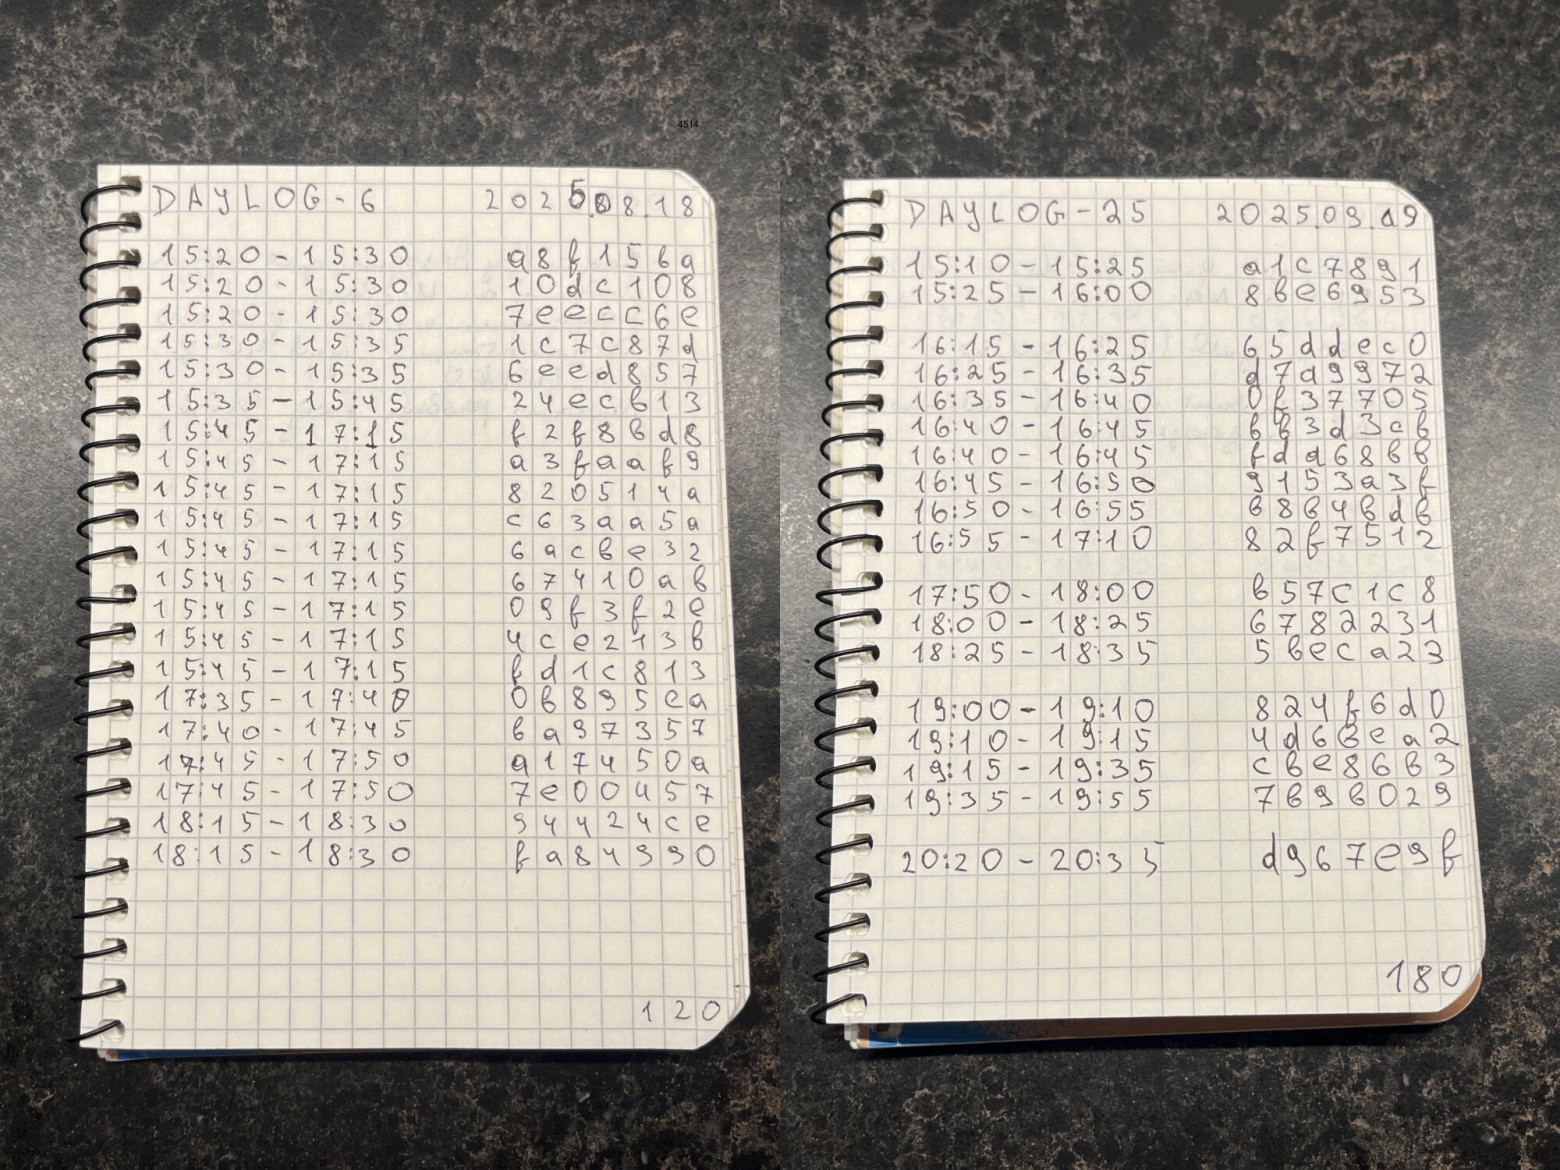 4514
DAYLOG-6 2025.08.18
15:20-15:30 a8f156a
15:20-15:30 10dc108
15:20-15:30 7eecc6e
15:30-15:35 1c7c87d
15:30-15:35 6eed857
15:35-15:45 24ecb13
15:45-17:15 f2f8bd8
15:45-17:15 a3faaf9
15:45-17:15 820514a
15:45-17:15 c63aa5a
15:45-17:15 6acbe32
15:45-17:15 67410ab
15:45-17:15 09f3f2e
15:45-17:15 4ce213b
15:45-17:15 fd1c813
17:35-17:40 0b895ea
17:40-17:45 ba97357
17:45-17:50 a17450a
17:45-17:50 7e00457
18:15-18:30 94424ce
18:15-18:30 fa84990
120
DAYLOG-25 2025.09.09
15:10-15:25 a1c7891
15:25-16:00 8be6953
16:15-16:25 65ddec0
16:25-16:35 d7d9972
16:35-16:40 0f37705
16:40-16:45 bb3d3cb
16:40-16:45 fdd68bb
16:45-16:50 9153a3f
16:50-16:55 b8b4bdb
16:55-17:10 82f7512
17:50-18:00 b57c1c8
18:00-18:25 6782231
18:25-18:35 5beca23
19:00-19:10 824f6d0
19:10-19:15 4d63ea2
19:15-19:35 cbe86b3
19:35-19:55 7696029
20:20-20:35 d967e9f
180